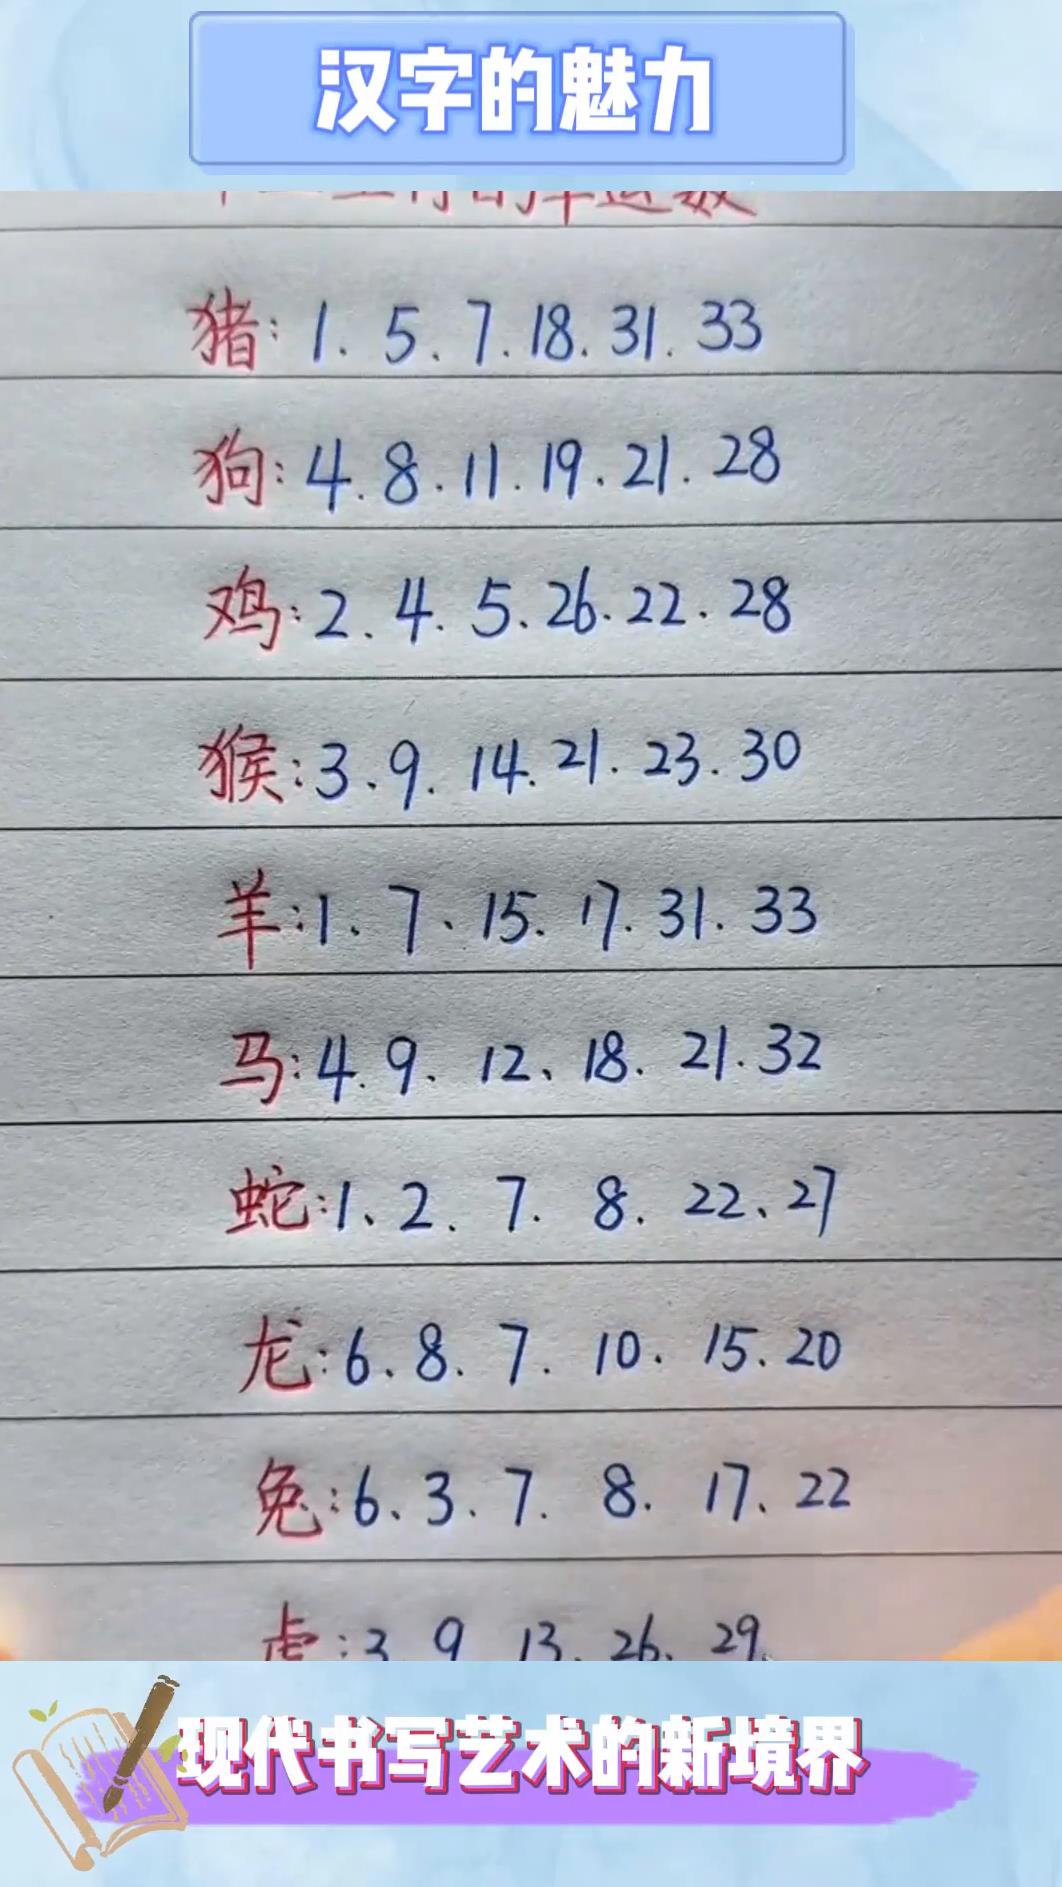 汉字的魅力
十二生肖的幸运数
猪:1.5.7.18.31.33
狗:4.8.11.19.21.28
鸡:2.4.5.26.22.28
猴:3.9.14.21.23.30
羊:1.7.15.17.31.33
马:4.9.12、18.21.32
蛇:1、2.7.8.22、27
龙:6.8.7.10.15.20
兔:6、3.7.8.17、22
虎:3 9 13.26.29.
现代书写艺术的新境界